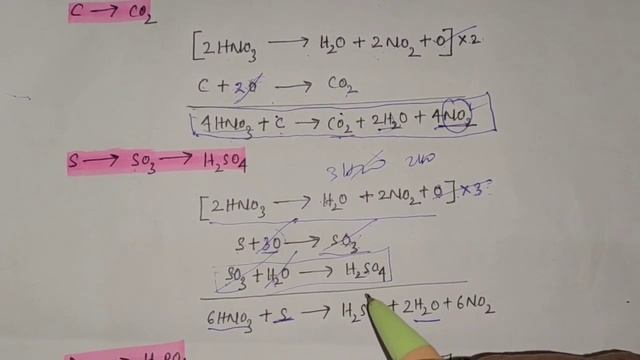 C → CO₂
[2HNO₃ → H₂O + 2NO₂ + O] × 2
C + 2O → CO₂
4HNO₃ + C → CO₂ + 2H₂O + 4NO₂
S → SO₃ → H₂SO₄
3H₂O
[2HNO₃ → H₂O + 2NO₂ + O] × 3
S + 3O → SO₃
SO₃ + H₂O → H₂SO₄
6HNO₃ + S → + 2H₂O + 6NO₂